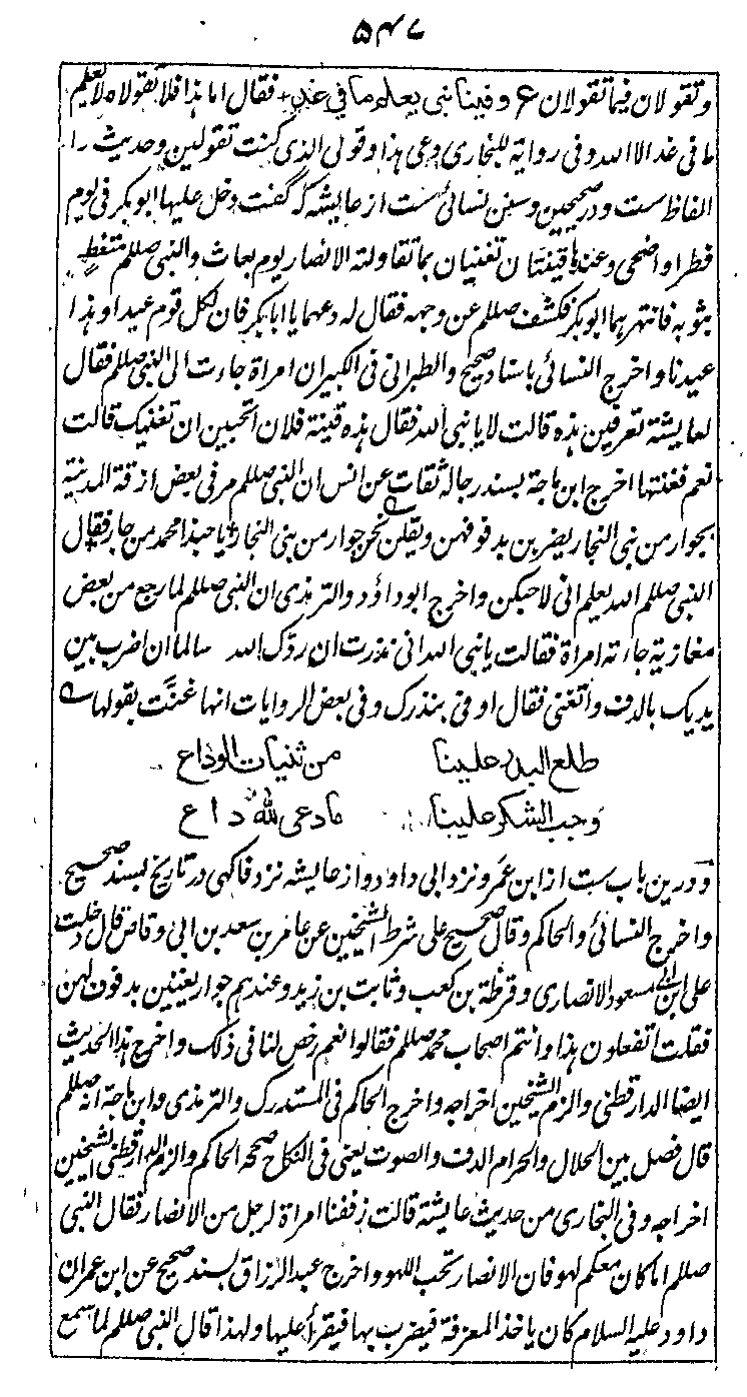 ۵۴۷
وتقولان فیما تقولان ع وفینا نبی یعلم ما فی غد + فقال اما هذا فلا تقولاه لا یعلم
ما فی غد الا الله وفی روایة للبخاری دعی هذا وقولی الذی کنت تقولین وحدیث را
الفاظ ست ودر صحیحین وسنن نسائی ست از عایشه که گفت دخل علیها ابوبکر فی یوم
فطر او اضحی وعندها قینتان تغنیان بما تقاولته الانصار یوم بعاث والنبی صللم متغط
بثوبه فانتهرهما ابوبکر فکشف صللم عن وجهه فقال له دعهما یا ابابکر فان لکل قوم عید او هذا
عیدنا واخرج النسائی باسناد صحیح والطبرانی فی الکبیر ان امراة جاءت الی النبی صللم فقال
لعایشة تعرفین هذه قالت لا یا نبی الله فقال هذه قینة فلان اتحبین ان تغنیک قالت
نعم فغنتها اخرج ابن ماجة بسند رجاله ثقات عن انس ان النبی صللم مر فی بعض ازقة المدینة
بجوار من بنی النجار یضربن بدفوفهن ویقلن نحن جوار من بنی النجار + یا حبذا محمد من جار فقال
النبی صللم الله یعلم انی لاحبکن واخرج ابوداؤد والترمذی ان النبی صللم لما رجع من بعض
مغازیة جاءته امراة فقالت یا نبی الله انی نذرت ان ردک الله سالما ان اضرب بین
یدیک بالدف واتغنی فقال اوفی بنذرک وفی بعض الروایات انها غنت بقولها
طلع البدر علینا من ثنیات الوداع
وجب الشکر علینا ما دعی لله داع
ودرین باب ست از ابن عمرو نزد ابی داود واز عایشه نزد فاکهی در تاریخ بسند صحیح
واخرج النسائی والحاکم وقال صحیح علی شرط الشیخین عن عامر بن سعد بن ابی وقاص قال دخلت
علی ابن ابی مسعود الانصاری وقرظة بن کعب وثابت بن زید وعندهم جوار یغنین بدفوف لهن
فقلت اتفعلون هذا وانتم اصحاب محمد صللم فقالوا نعم رخص لنا فی ذلک واخرج هذا الحدیث
ایضا الدارقطنی والزم الشیخین اخراجه واخرج الحاکم فی المستدرک والترمذی وابن ماجة انه صللم
قال فصل بین الحلال والحرام الدف والصوت یعنی فی النکاح صححه الحاکم والزم الدارقطنی الشیخین
اخراجه وفی البخاری من حدیث عایشة قالت زففنا امراة لرجل من الانصار فقال النبی
صللم اما کان معکم لهو فان الانصار تحب اللهو واخرج عبد الرزاق بسند صحیح عن ابن عمر ان
داود علیه السلام کان یاخذ المعزفة فیضرب بها فیقرأ علیها ولهذا قال النبی صللم لما سمع